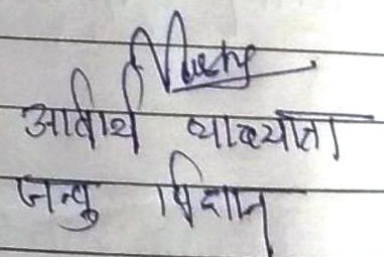 अतिथि व्याख्याता
जन्तु विज्ञान